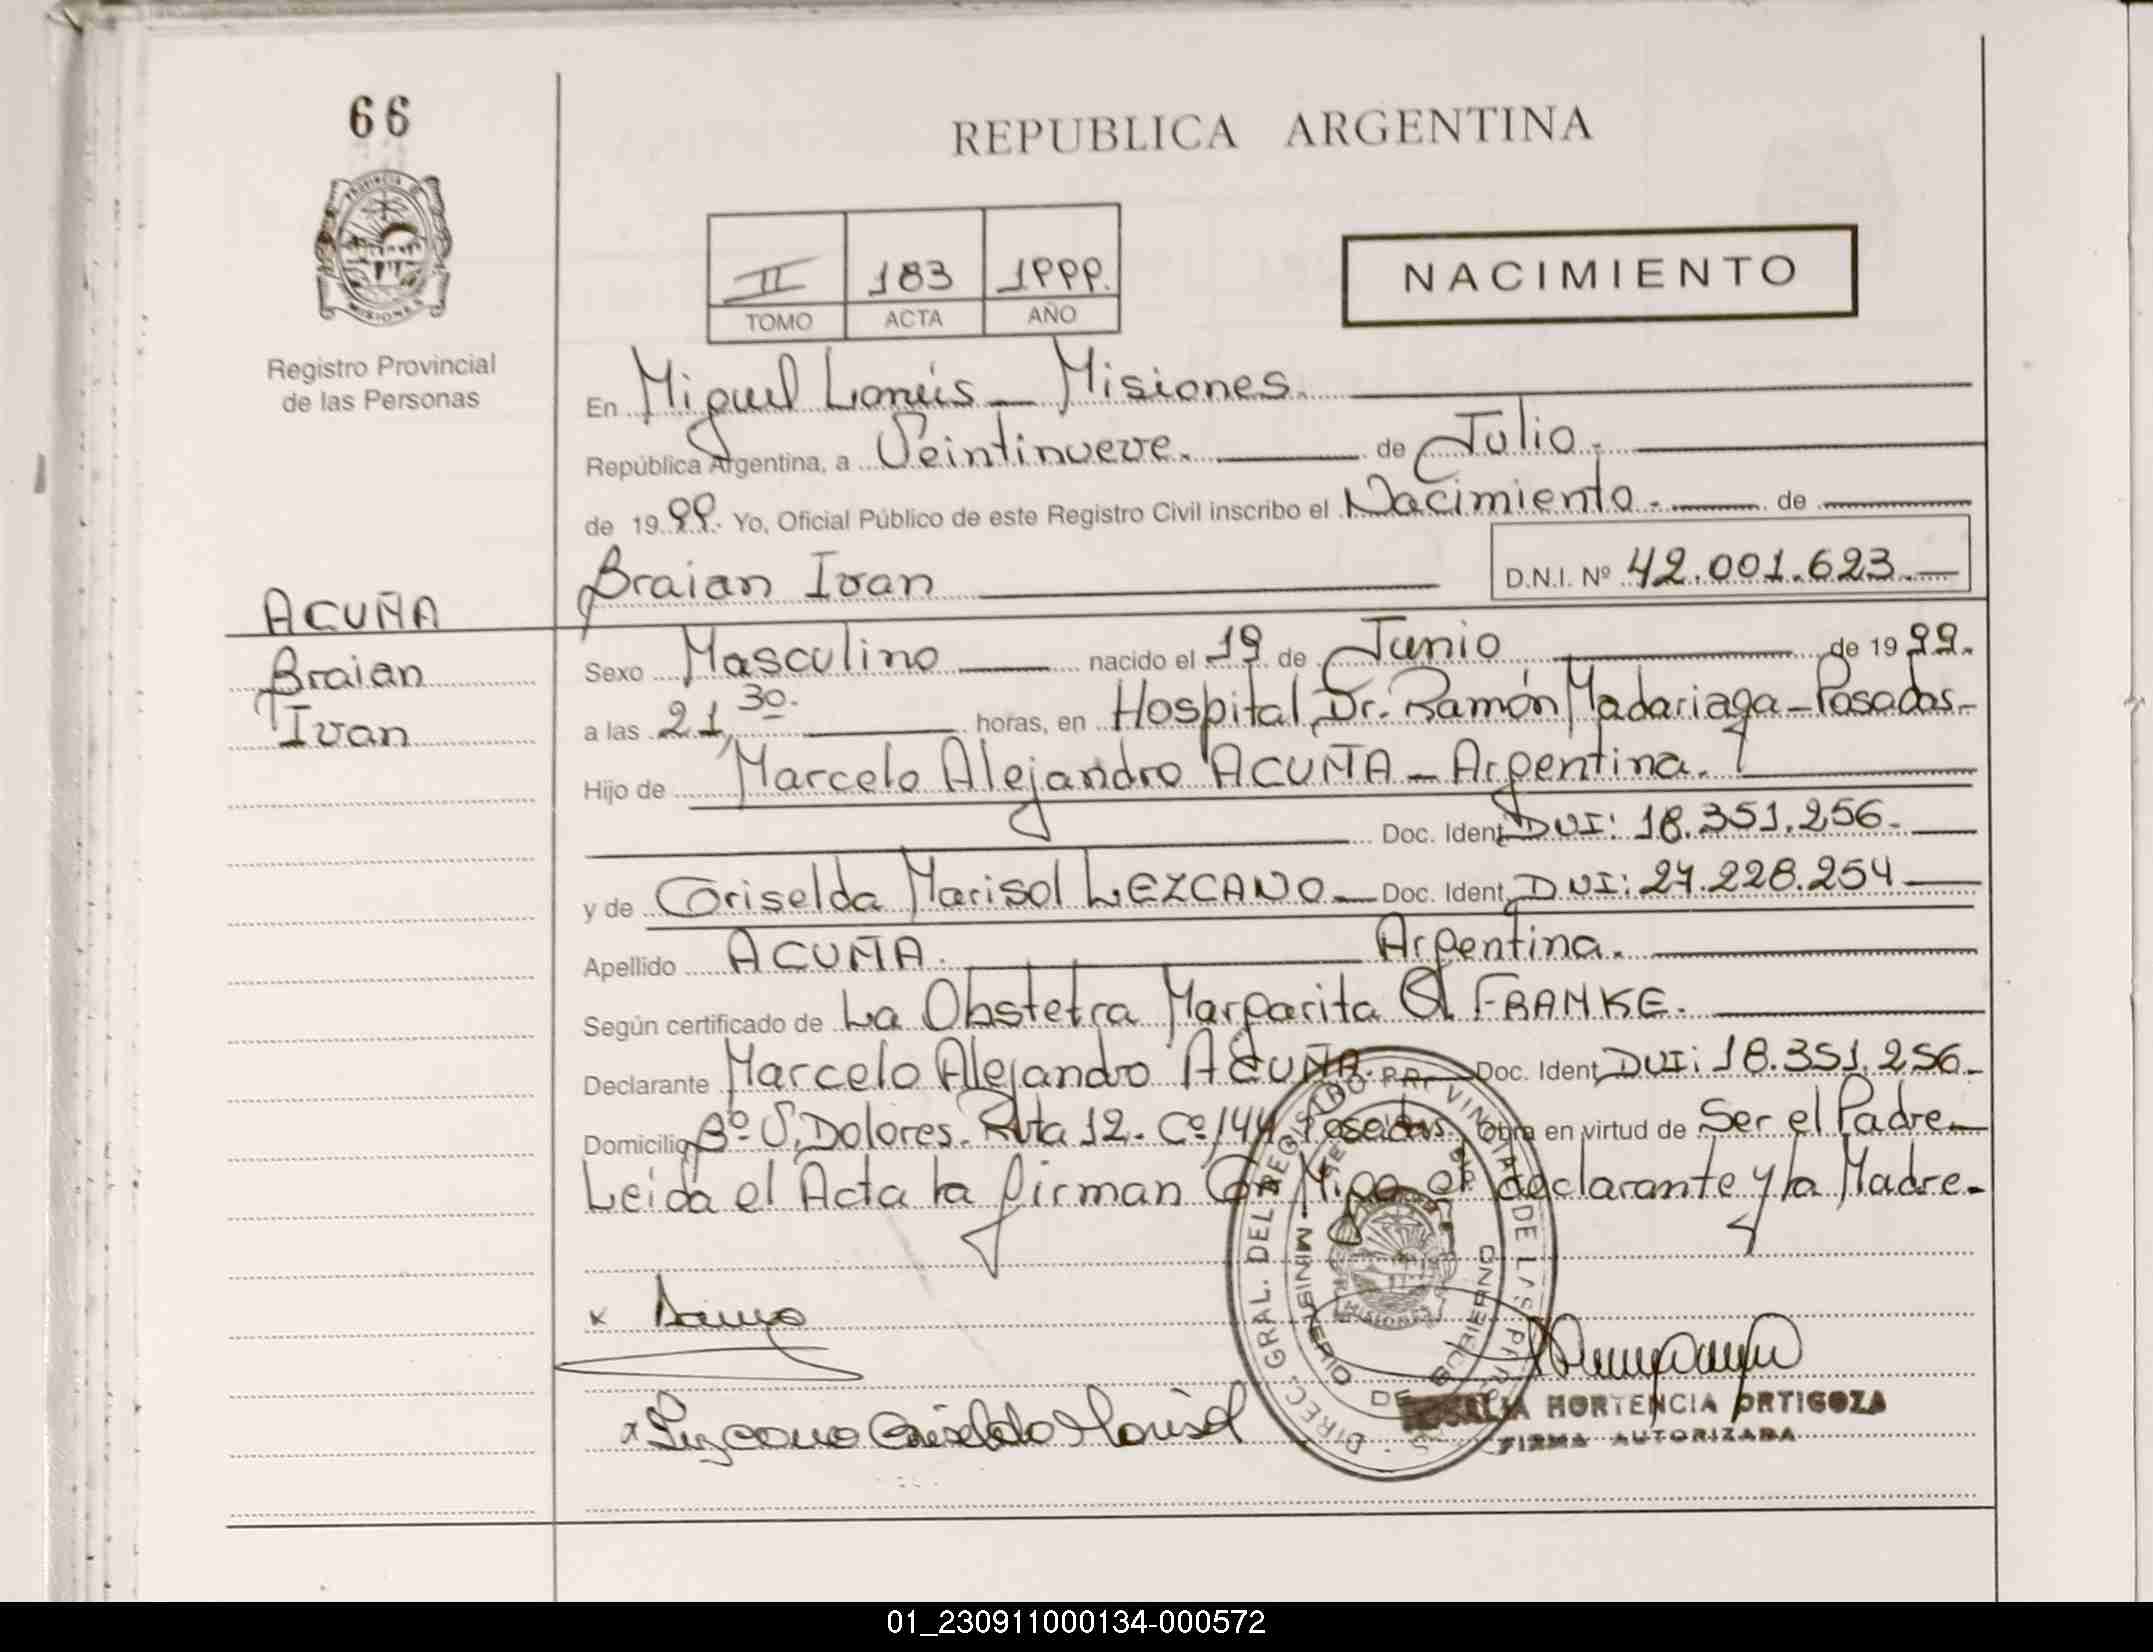 66
REPUBLICA ARGENTINA
II 183 1999.
TOMO ACTA AÑO
NACIMIENTO
Registro Provincial
de las Personas
En Miguel Lanús - Misiones.
República Argentina, a Veintinueve. de Julio.
de 1999. Yo, Oficial Público de este Registro Civil inscribo el Nacimiento. de
Braian Ivan D.N.I. Nº 42.001.623.
ACUÑA
Braian
Ivan
Sexo Masculino nacido el 19 de Junio de 1999.
a las 21,30. horas, en Hospital Dr. Ramón Madariaga - Posadas -
Hijo de Marcelo Alejandro ACUÑA - Argentina.
Doc. Ident. DNI: 18.351.256.
y de Griselda Marisol LEZCANO - Doc. Ident. DNI: 27.228.254
Apellido ACUÑA. Argentina.
Según certificado de La Obstetra Margarita FRANKE.
Declarante Marcelo Alejandro ACUÑA. Doc. Ident. DNI: 18.351.256.
Domicilio Bº V. Dolores. Ruta 12. Cº 144 Posadas. Obra en virtud de Ser el Padre
Leida el Acta la firman Conmigo el declarante y la Madre.
DIREC. GRAL. DEL REGISTRO PROVINCIAL DE LAS PERSONAS
MINISTERIO DE GOBIERNO
MISIONES
x
x Lezcano Griselda Marisol
HORTENCIA ORTIGOZA
FIRMA AUTORIZADA
01_230911000134-000572